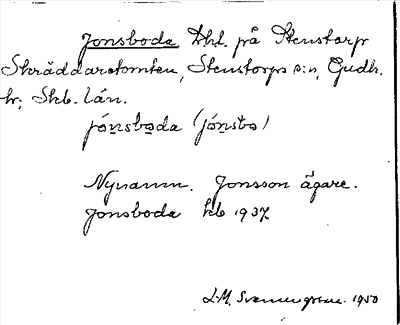 Jonsboda Lht. på Stenstorp
Skräddaretomten, Stenstorps s:n, Gudh.
hr; Skb. län.
jónsboda (jónsbo)
Nynamn. Jonsson ägare.
Jonsboda kb 1937
1950